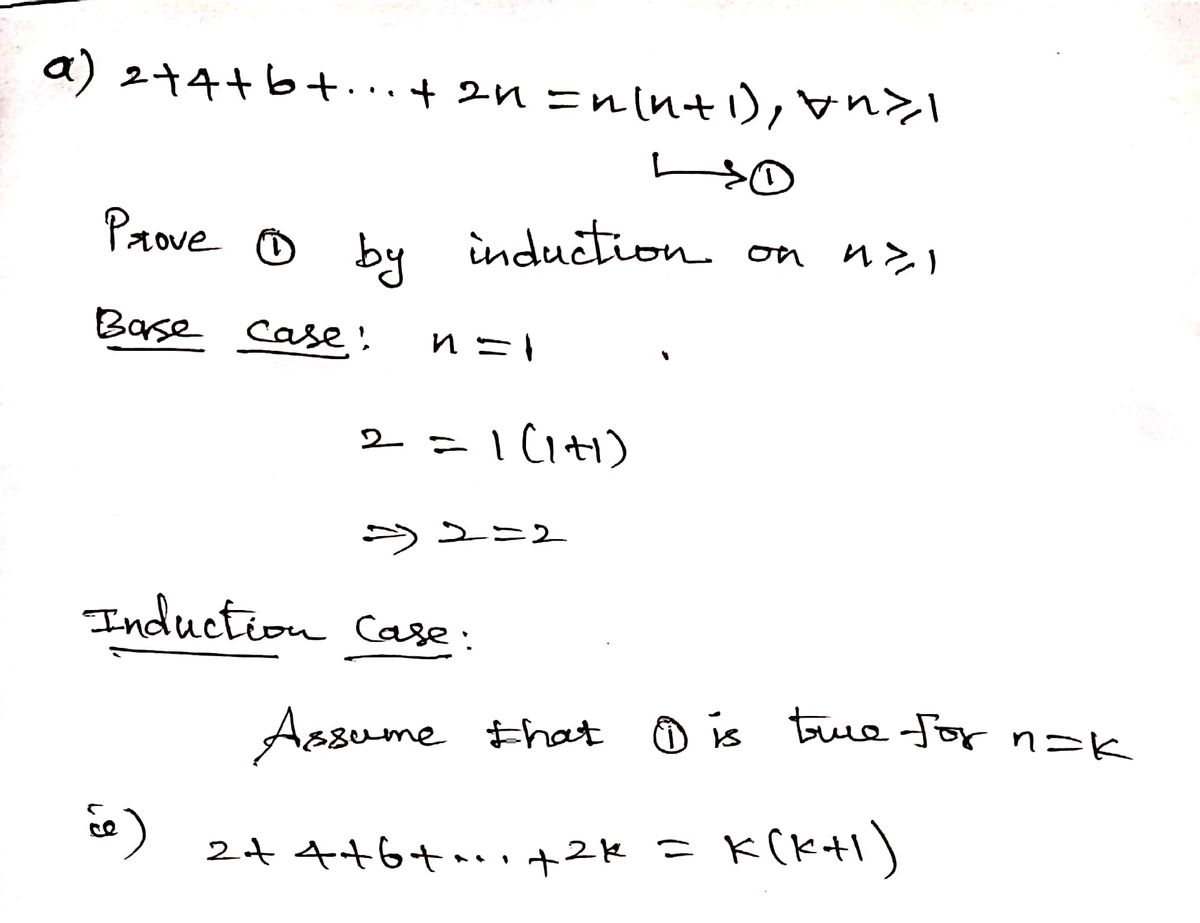 a) 2+4+6+...+ 2n = n(n+1), ∀n≥1
↳①
Prove ① by induction on n≥1
Base case: n=1
2 = 1(1+1)
⇒ 2=2
Induction Case:
Assume that ① is true for n=k
ie) 2+4+6+...+2k = k(k+1)